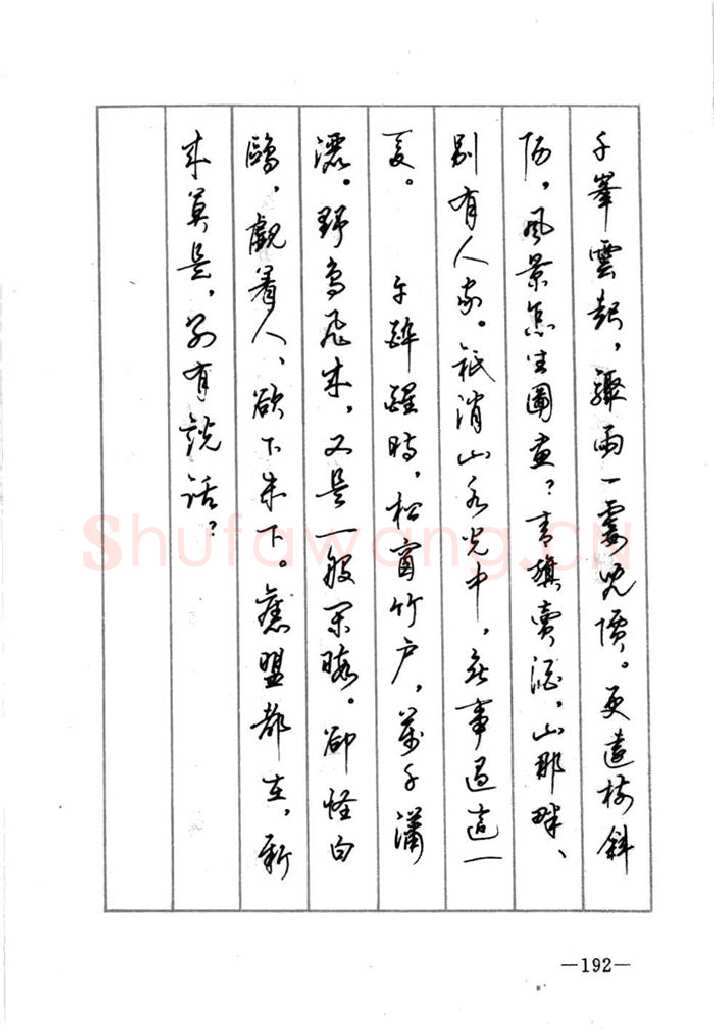 千峯雲起，驟雨一霎兒價。更遠樹斜
陽，風景怎生圖畫？青旗賣酒，山那畔、
別有人家。祇消山水光中，無事過這一
夏。　午醉醒時，松窗竹户，萬千瀟
灑。野鳥飛來，又是一般閑暇。卻怪白
鷗，觑着人、欲下未下。舊盟都在，新
來莫是，别有説话？
Shufawang.CN
—192—